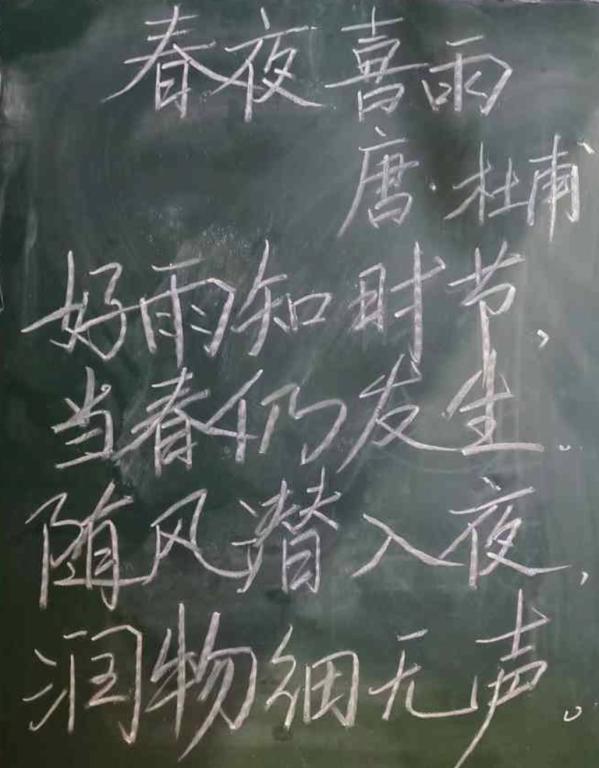 春夜喜雨
唐·杜甫
好雨知时节，
当春仍发生。
随风潜入夜，
润物细无声。